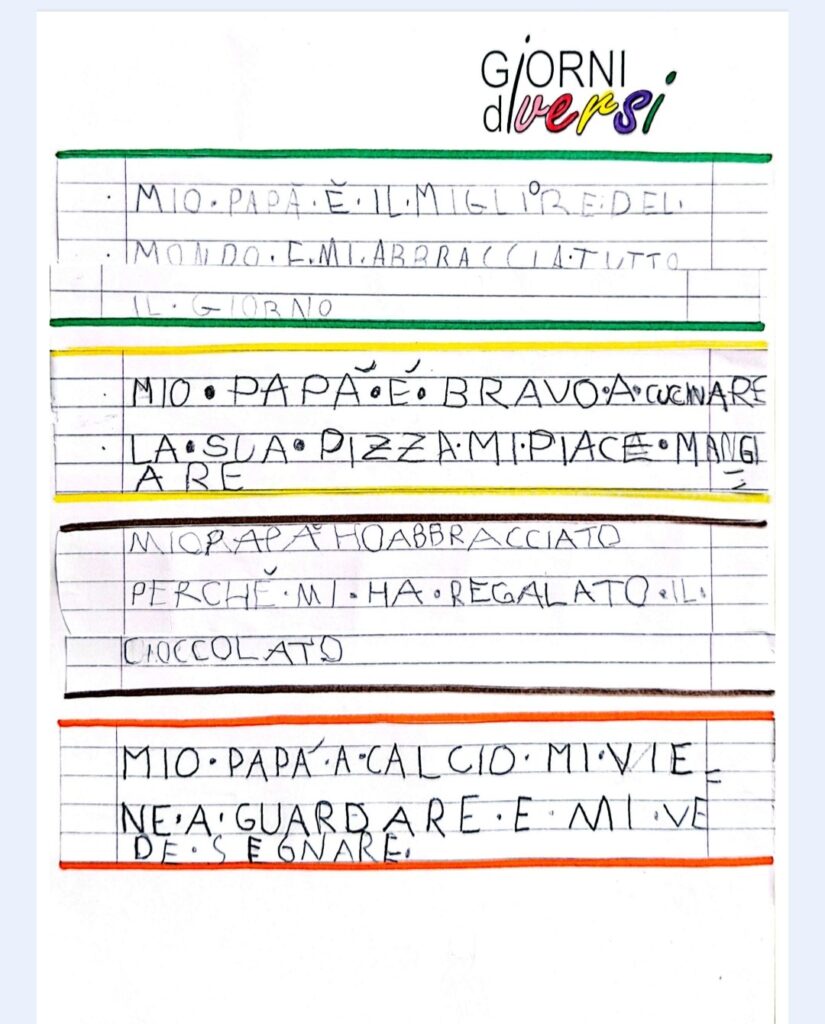 GiORNI
diversi
MIO·PAPÀ·È·IL·MIGLIORE·DEL·
MONDO·E·MI·ABBRACCIA·TUTTO
IL·GIORNO
MIO·PAPÀ·É·BRAVO·A·CUCINARE
LA·SUA·PIZZA·MI·PIACE·MANGI=
ARE
MIO PAPÀ HO ABBRACCIATO
PERCHÉ·MI·HA·REGALATO·IL·
CIOCCOLATO
MIO·PAPÀ·A·CALCIO·MI·VIE=
NE·A·GUARDARE·E·MI·VE
DE·SEGNARE.